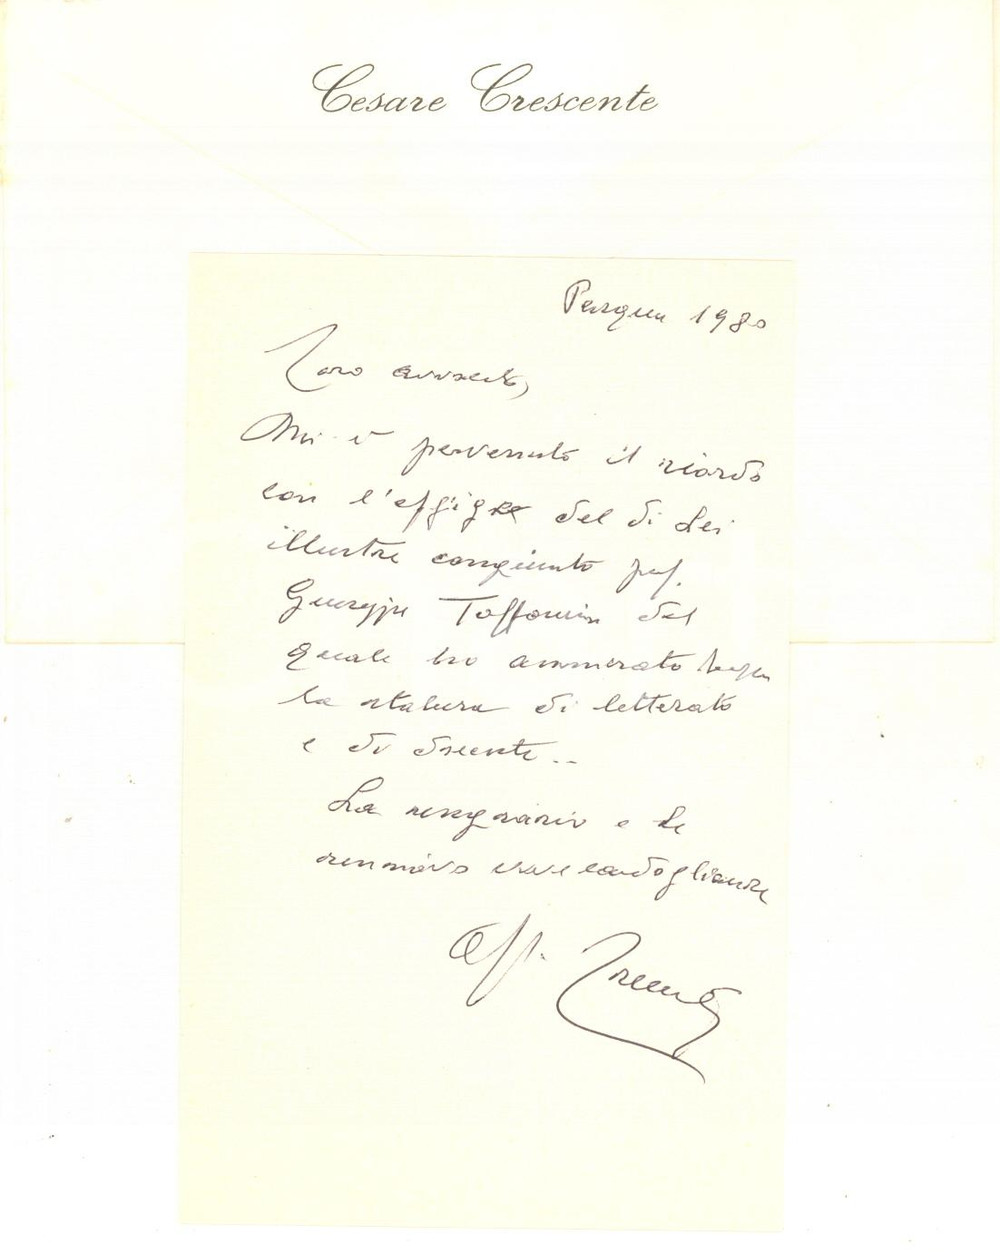 Cesare Crescente
Pasqua 1980
Caro avvocato,
Mi è pervenuto il ricordo
con l'effigie del di Lei
illustre congiunto prof.
Giuseppe Toffanin del
quale ho ammirato sempre
la statura di letterato
e di docente...
La ringrazio e Le
rinnovo vive condoglianze
Aff. Crescente